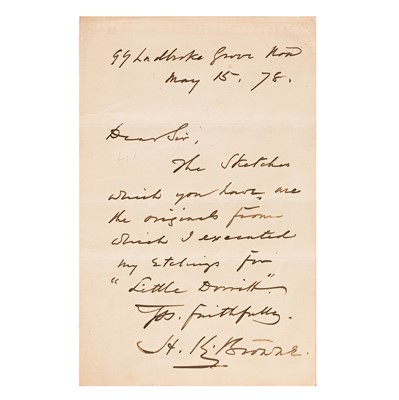 99 Ladbroke Grove Road
May 15. 78.
Dear Sir,
The Sketches
which you have, are
the originals from
which I executed
my Etchings for
"Little Dorrit".
Yrs. faithfully
H. K. Browne.